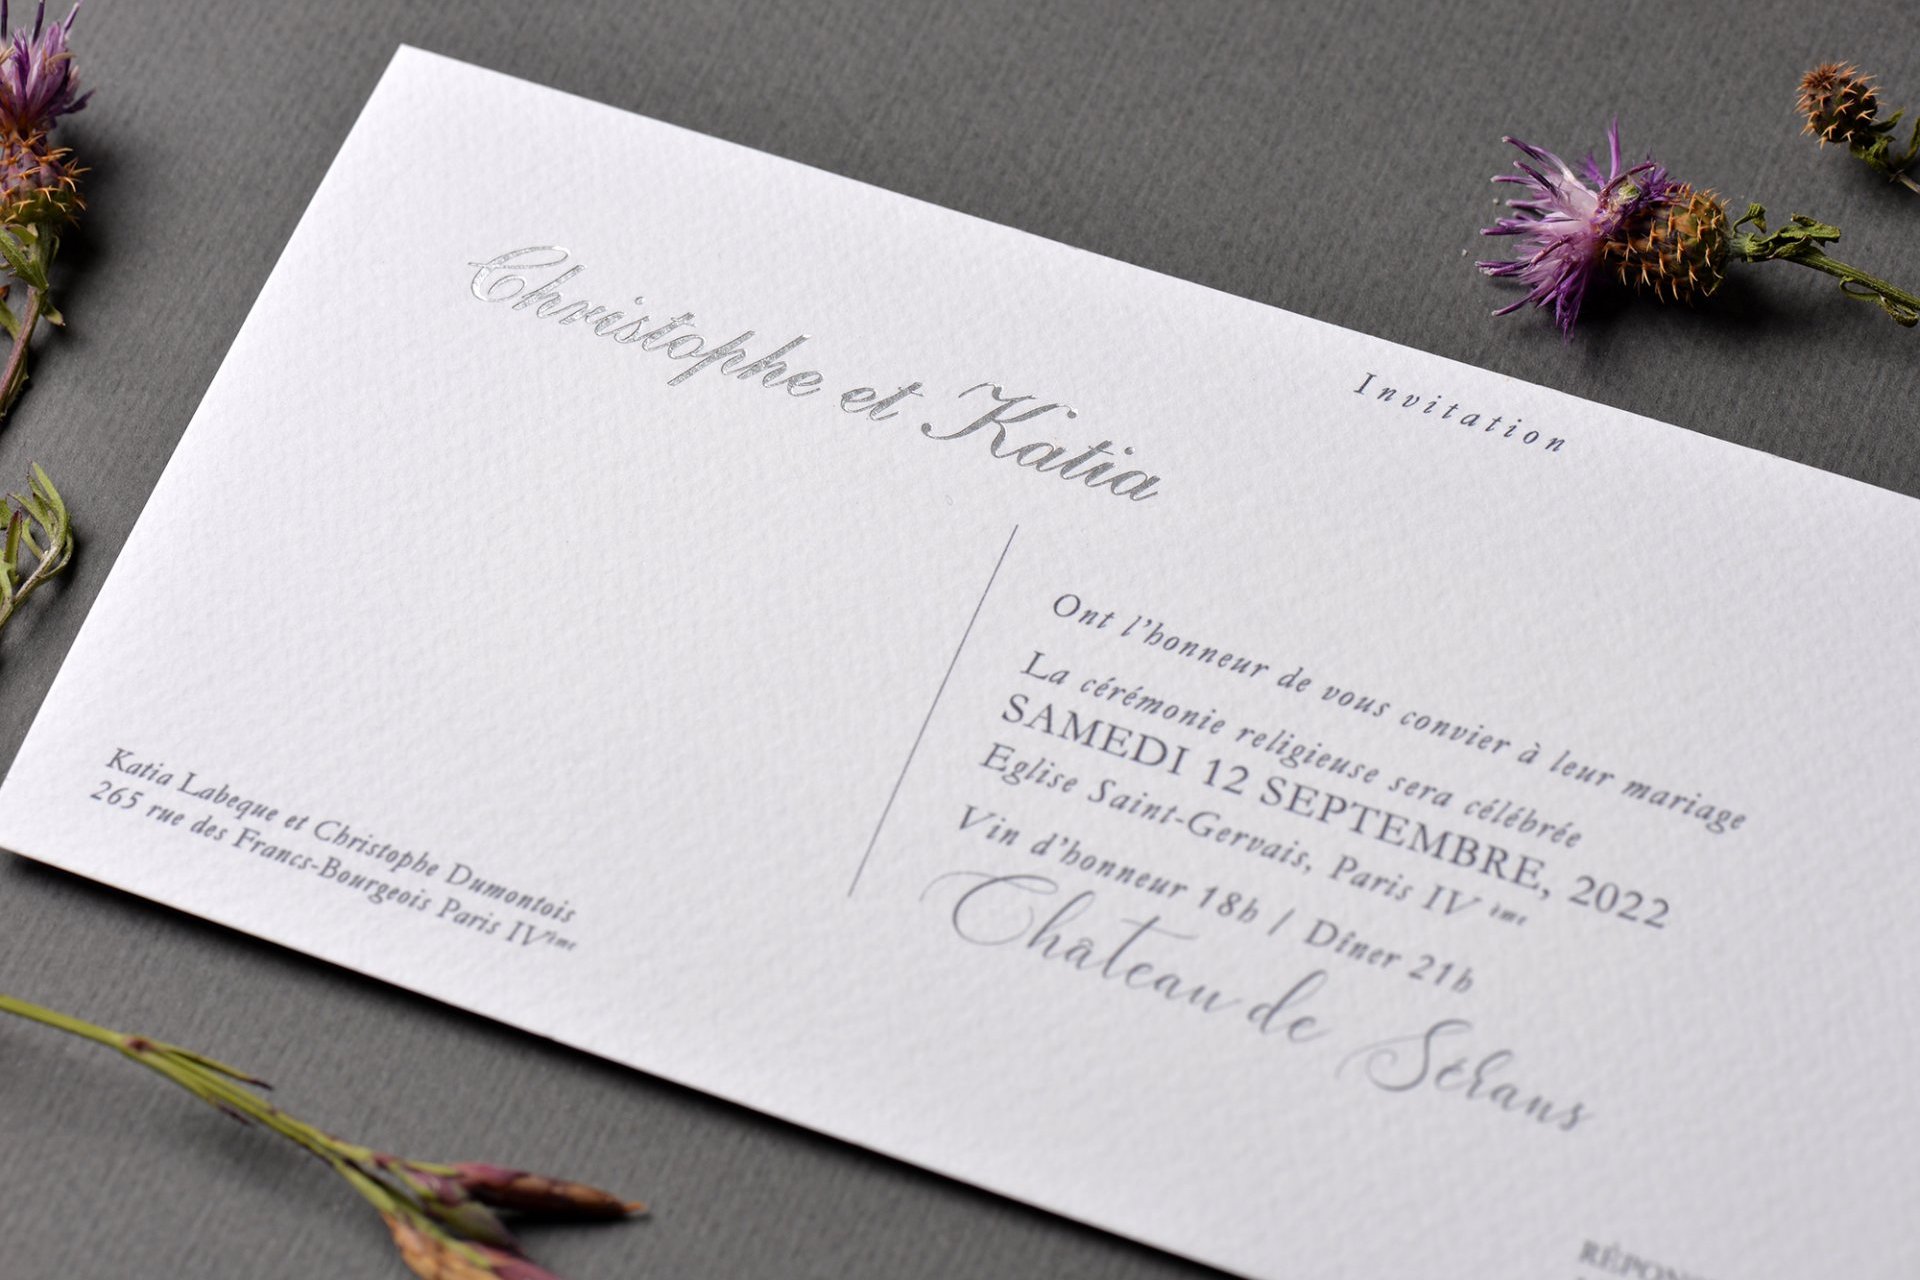 Christophe et Katia
Invitation
Ont l'honneur de vous convier à leur mariage
La cérémonie religieuse sera célébrée
SAMEDI 12 SEPTEMBRE, 2022
Eglise Saint-Gervais, Paris IV ème
Vin d'honneur 18h / Dîner 21h
Château de Sérans
Katia Labeque et Christophe Dumontois
265 rue des Francs-Bourgeois Paris IVème